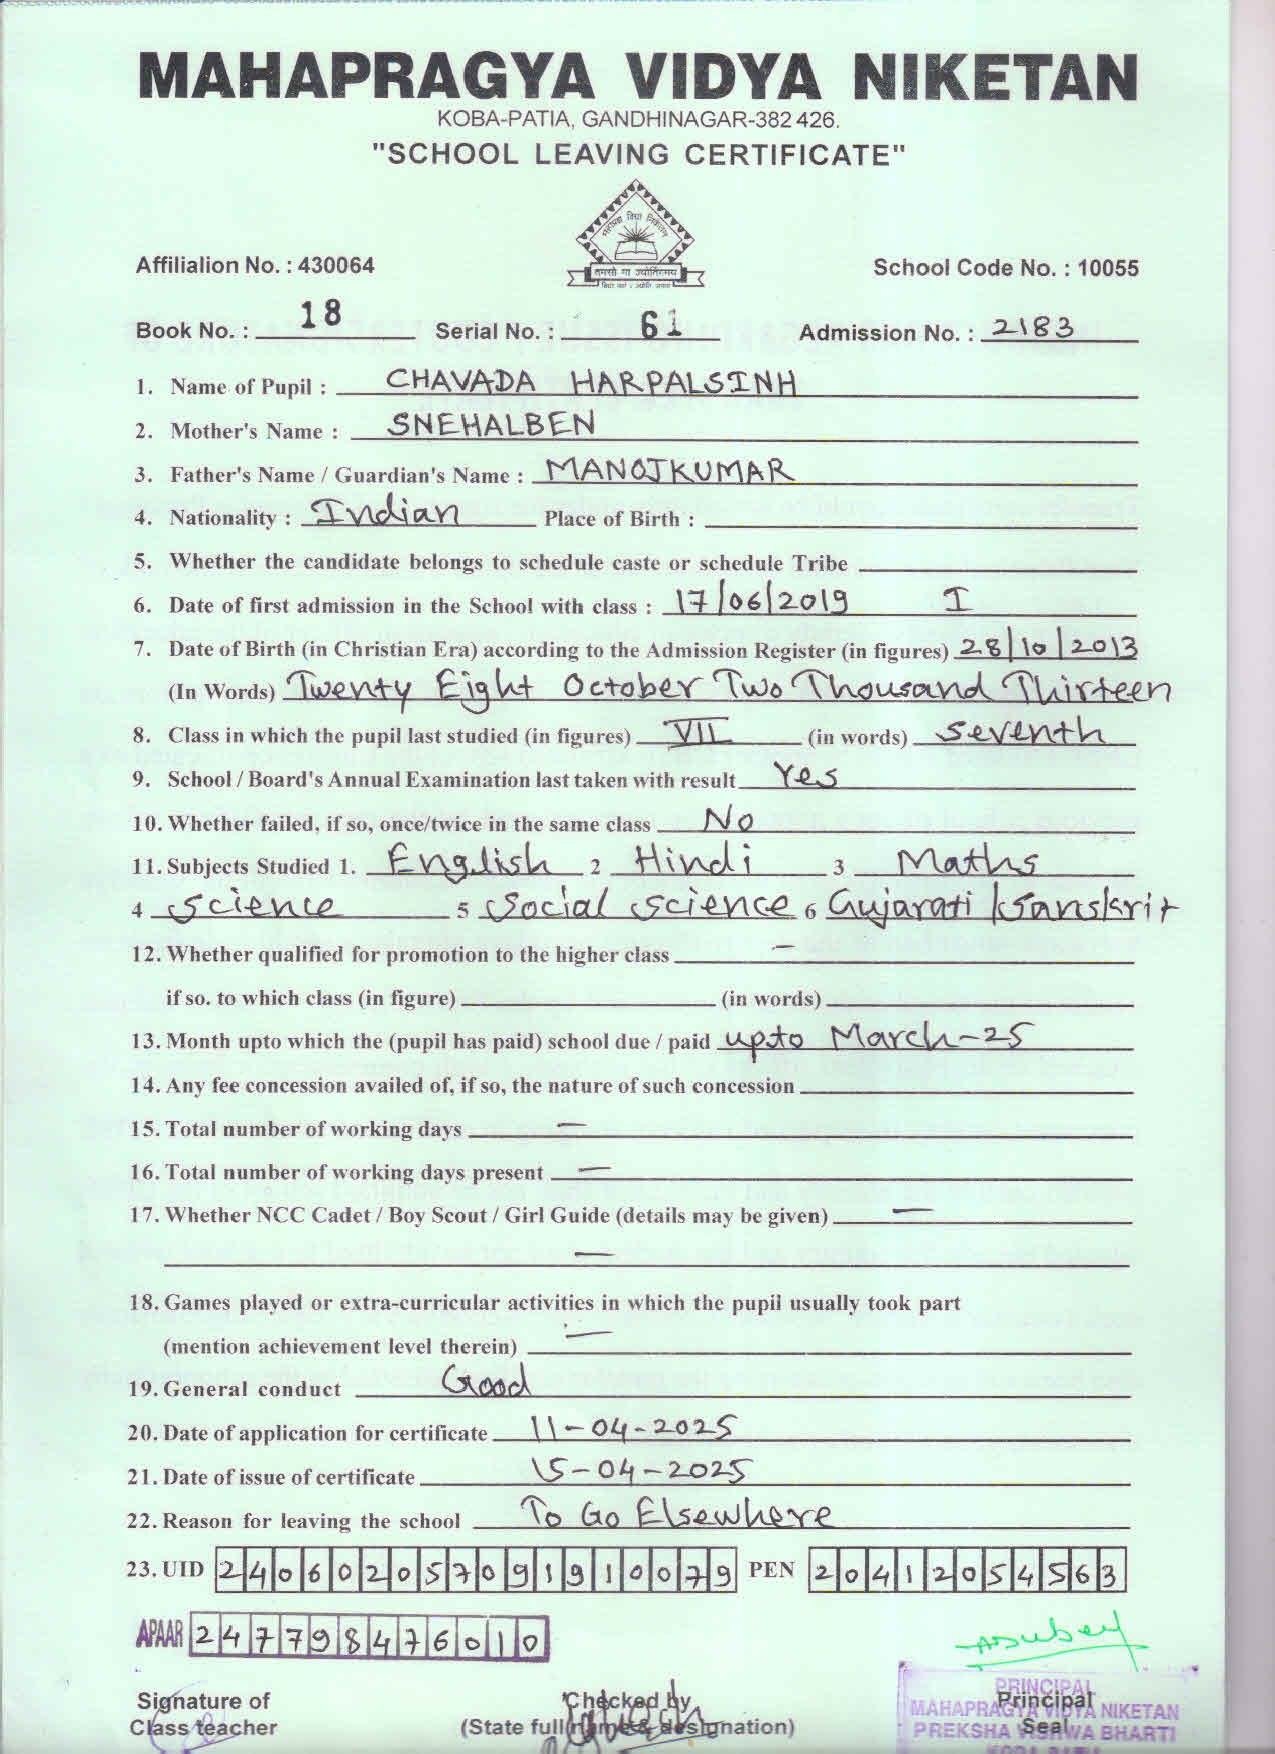 MAHAPRAGYA VIDYA NIKETAN
KOBA-PATIA, GANDHINAGAR-382 426.
"SCHOOL LEAVING CERTIFICATE"
महाप्रज्ञ विद्या निकेतन
तमसो मा ज्योतिर्गमय
Affilialion No. : 430064 School Code No. : 10055
Book No. : 18 Serial No. : 61 Admission No. : 2183
1. Name of Pupil : CHAVADA HARPALSINH
2. Mother's Name : SNEHALBEN
3. Father's Name / Guardian's Name : MANOJKUMAR
4. Nationality : Indian Place of Birth :
5. Whether the candidate belongs to schedule caste or schedule Tribe
6. Date of first admission in the School with class : 17/06/2019 I
7. Date of Birth (in Christian Era) according to the Admission Register (in figures) 28/10/2013
(In Words) Twenty Eight October Two Thousand Thirteen
8. Class in which the pupil last studied (in figures) VII (in words) seventh
9. School / Board's Annual Examination last taken with result Yes
10. Whether failed, if so, once/twice in the same class No
11. Subjects Studied 1. English 2 Hindi 3 Maths
4 Science 5 Social Science 6 Gujarati / Sanskrit
12. Whether qualified for promotion to the higher class —
if so. to which class (in figure) (in words)
13. Month upto which the (pupil has paid) school due / paid upto March-25
14. Any fee concession availed of, if so, the nature of such concession
15. Total number of working days —
16. Total number of working days present —
17. Whether NCC Cadet / Boy Scout / Girl Guide (details may be given) —
—
18. Games played or extra-curricular activities in which the pupil usually took part
(mention achievement level therein) —
19. General conduct Good
20. Date of application for certificate 11-04-2025
21. Date of issue of certificate 15-04-2025
22. Reason for leaving the school To Go Elsewhere
23. UID 240602057091910079 PEN 20412054563
APAAR 247798476010
ADubey
Signature of Checked by Principal
Class teacher (State full name & designation) Seal
PRINCIPAL
MAHAPRAGYA VIDYA NIKETAN
PREKSHA VISHWA BHARTI